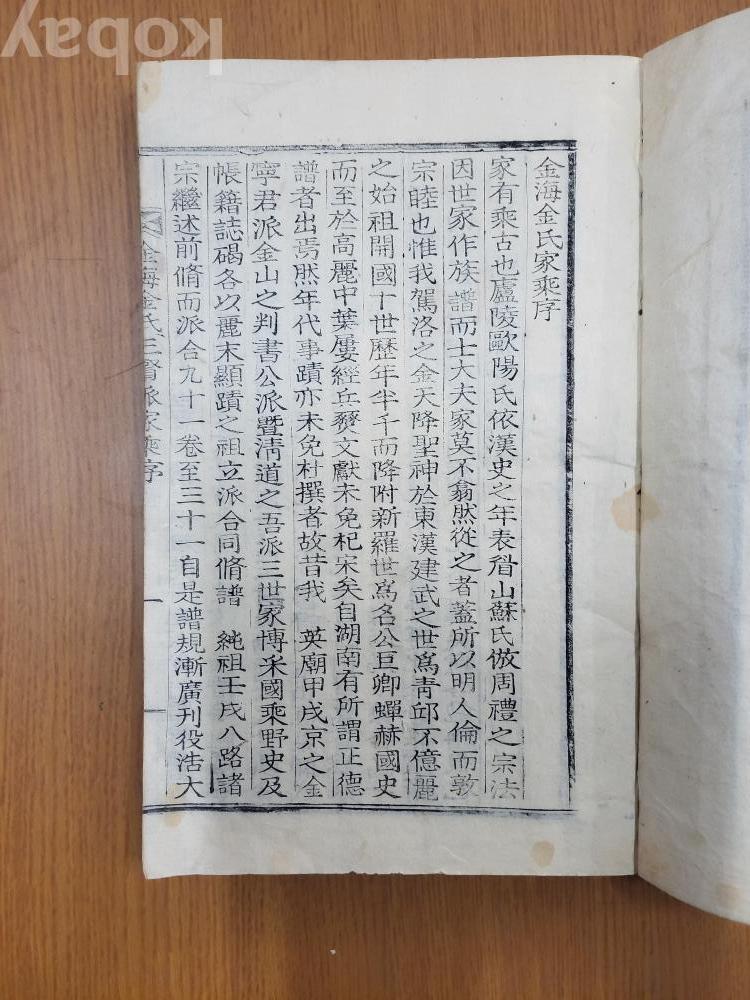 kobay
金海金氏家乘序
家有乘古也廬陵歐陽氏依漢史之年表眉山蘇氏倣周禮之宗法
因世家作族譜而士大夫家莫不翕然從之者蓋所以明人倫而敦
宗睦也惟我駕洛之金天降聖神於東漢建武之世爲靑邱不億麗
之始祖開國十世歷年半千而降附新羅世爲名公巨卿蟬赫國史
而至於高麗中葉屢經兵燹文獻未免杞宋矣自湖南有所謂正德
譜者出焉然年代事蹟亦未免杜撰者故昔我 英廟甲戌京之金
寧君派金山之判書公派曁淸道之吾派三世家博采國乘野史及
帳籍誌碣各以麗末顯蹟之祖立派合同脩譜 純祖壬戌八路諸
宗繼述前脩而派合九十一卷至三十一自是譜規漸廣刊役浩大
金海金氏三賢派家乘序 一